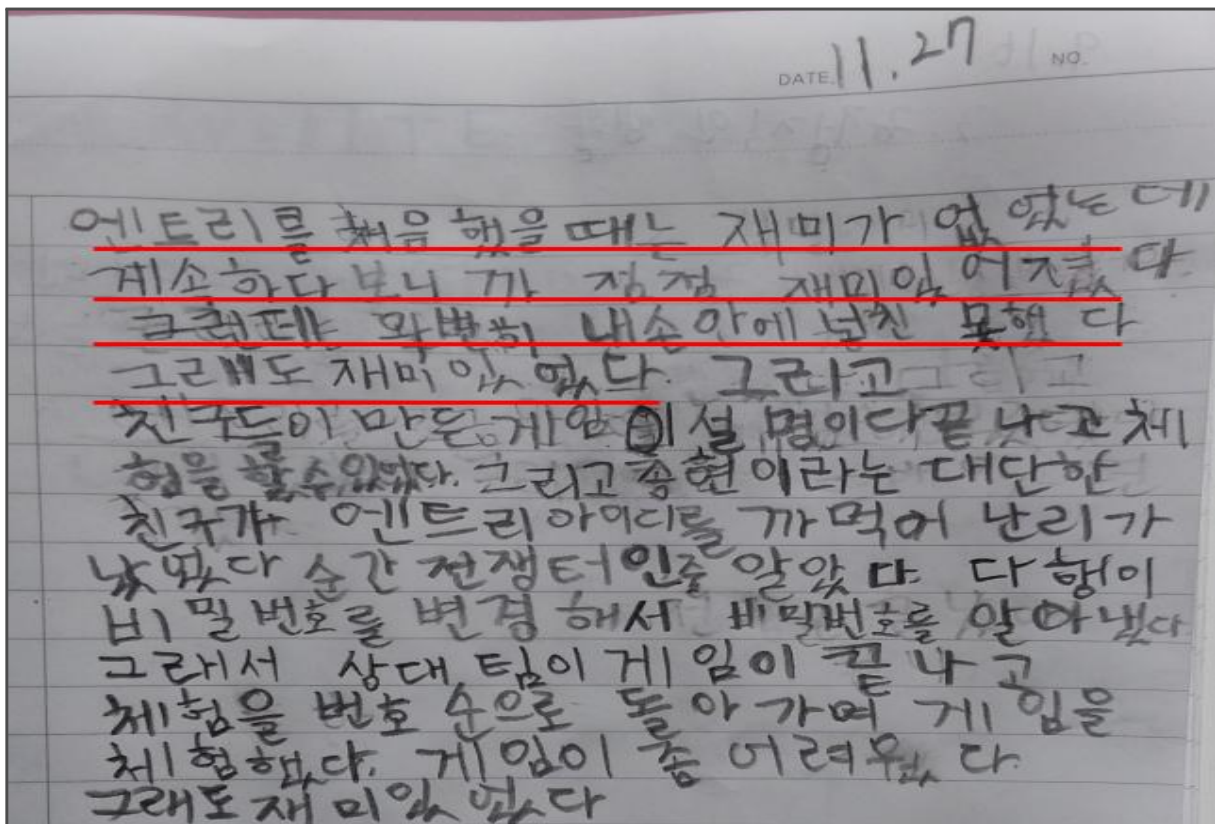 DATE. 11.27 NO.
엔트리를 처음 했을 때는 재미가 없었는데
계속하다보니까 점점 재미있어졌다
그런데 완벽히 내손안에 넣진 못했다
그래도 재미있었다. 그리고
친구들이 만든 게임이 설명이다끝나고체
험을 할 수 있었다. 그리고 송현이라는 대단한
친구가 엔트리아이디를 까먹어 난리가
났었다 순간 전쟁터인줄 알았다 다행이
비밀번호를 변경해서 비밀번호를 알아냈다
그래서 상대 팀이 게임이 끝나고
체험을 번호 순으로 돌아가며 게임을
체험했다. 게임이 좀 어려웠다.
그래도재미있었다